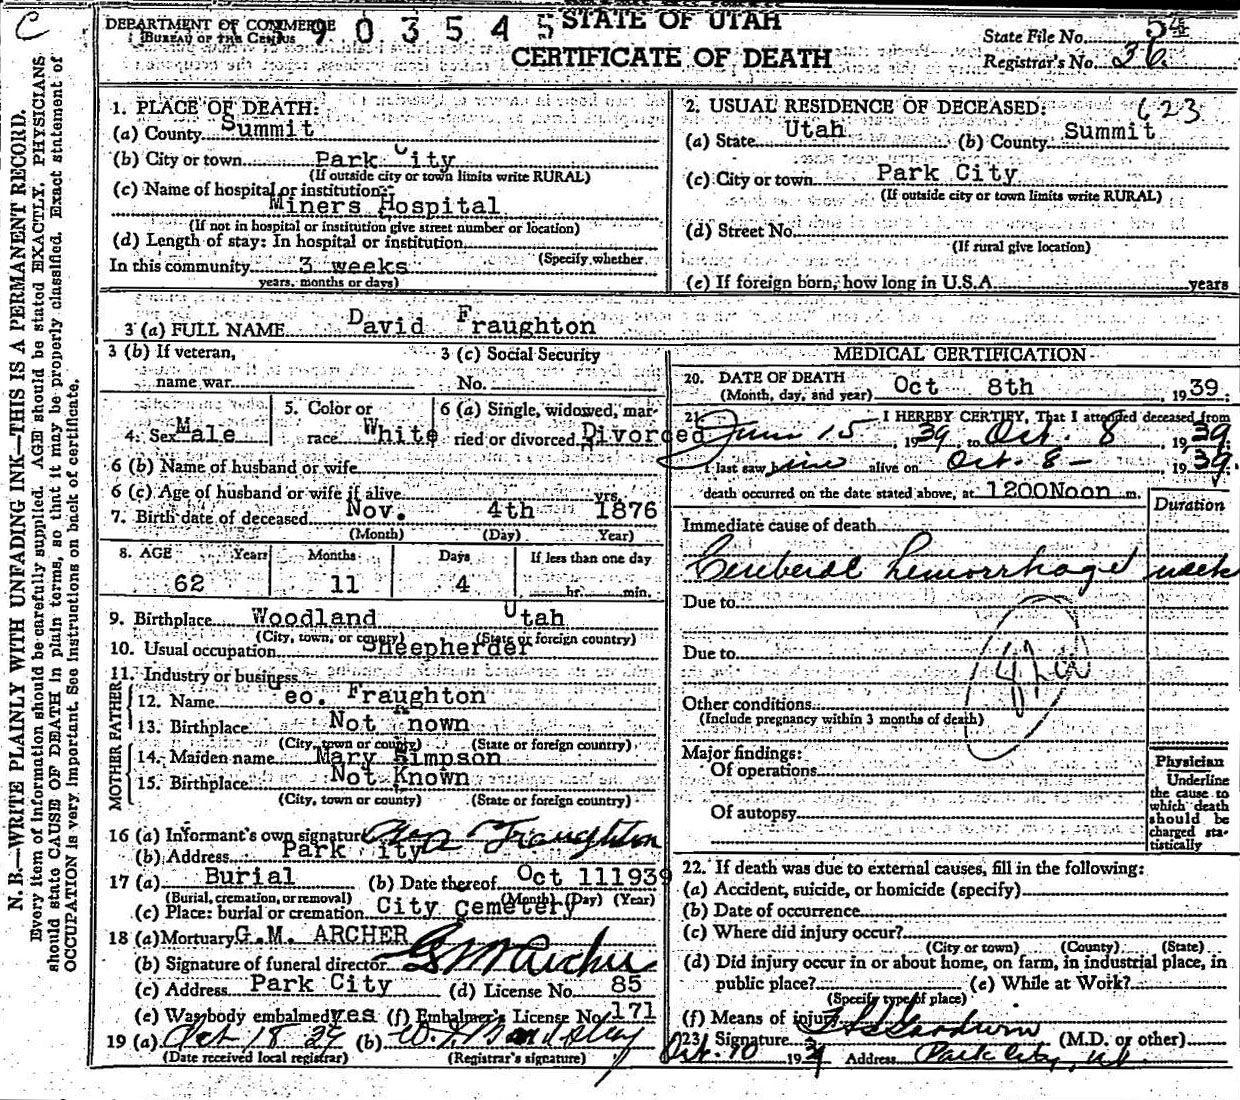 C
DEPARTMENT OF COMMERCE
BUREAU OF THE CENSUS
3903545
STATE OF UTAH
CERTIFICATE OF DEATH
State File No. 54
Registrar's No. 36
623
N. B.—WRITE PLAINLY WITH UNFADING INK—THIS IS A PERMANENT RECORD.
Every item of information should be carefully supplied. AGE should be stated EXACTLY. PHYSICIANS
should state CAUSE OF DEATH in plain terms, so that it may be properly classified. Exact statement of
OCCUPATION is very important. See instructions on back of certificate.
1. PLACE OF DEATH:
(a) County Summit
(b) City or town Park City
(If outside city or town limits write RURAL)
(c) Name of hospital or institution:
Miners Hospital
(If not in hospital or institution give street number or location)
(d) Length of stay: In hospital or institution
(Specify whether
In this community 3 weeks
years, months or days)
2. USUAL RESIDENCE OF DECEASED:
(a) State Utah (b) County Summit
(c) City or town Park City
(If outside city or town limits write RURAL)
(d) Street No.
(If rural give location)
(e) If foreign born, how long in U.S.A. years
3 (a) FULL NAME David Fraughton
3 (b) If veteran,
name war
3 (c) Social Security
No.
4. Sex Male
5. Color or
race White
6 (a) Single, widowed, mar-
ried or divorced Divorced
6 (b) Name of husband or wife
6 (c) Age of husband or wife if alive yrs.
7. Birth date of deceased Nov. 4th 1876
(Month) (Day) Year)
8. AGE Years Months Days If less than one day
62 11 4 hr. min.
9. Birthplace Woodland Utah
(City, town, or county) (State or foreign country)
10. Usual occupation Sheepherder
11. Industry or business
FATHER
12. Name Geo. Fraughton
13. Birthplace Not Known
(City, town or county) (State or foreign country)
MOTHER
14. Maiden name Mary Simpson
15. Birthplace Not Known
(City, town or county) (State or foreign country)
16 (a) Informant's own signature Geo Fraughton
(b) Address Park City
17 (a) Burial (b) Date thereof Oct 11 1939
(Burial, cremation, or removal) (Month) (Day) (Year)
(c) Place: burial or cremation City Cemetery
18 (a) Mortuary G.M. ARCHER
(b) Signature of funeral director GM Archer
(c) Address Park City (d) License No. 85
(e) Was body embalmed yes (f) Embalmer's License No. 171
19 (a) Oct 18 39 (b)
(Date received local registrar) (Registrar's signature)
MEDICAL CERTIFICATION
20. DATE OF DEATH Oct 8th 1939:
(Month, day, and year)
21. I HEREBY CERTIFY, That I attended deceased from
June 15, 1939, to Oct. 8, 1939.
I last saw him alive on Oct. 8 — 1939.
death occurred on the date stated above, at 1200Noon m.
Duration
Immediate cause of death
Cerebral hemorrhage week
Due to
Due to
Other conditions
(Include pregnancy within 3 months of death)
Major findings:
Of operations
Of autopsy
Physician
Underline
the cause to
which death
should be
charged sta-
tistically
22. If death was due to external causes, fill in the following:
(a) Accident, suicide, or homicide (specify)
(b) Date of occurrence
(c) Where did injury occur?
(City or town) (County) (State)
(d) Did injury occur in or about home, on farm, in industrial place, in
public place? (e) While at Work?
(Specify type of place)
(f) Means of injury
23. Signature Goodwin (M.D. or other)
Oct. 10 1939 Address Park City, Ut